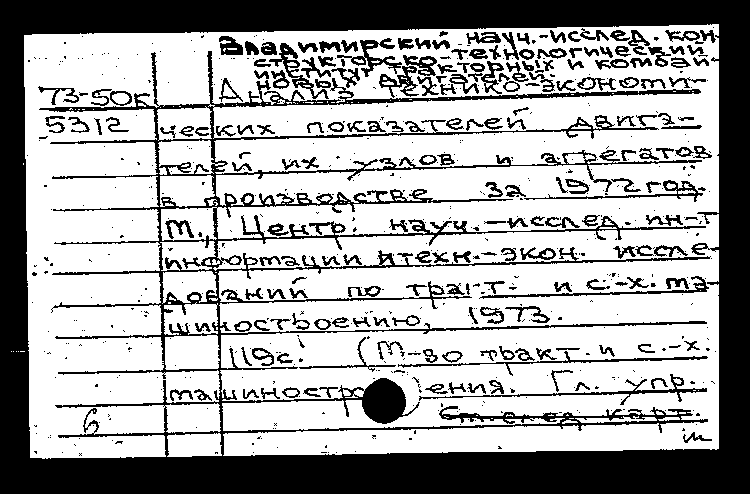 Владимирский науч.-исслед. кон-
структорско-технологический
институт тракторных и комбай-
новых двигателей.
73-50к Анализ технико-экономи-
5312 ческих показателей двига-
телей, их узлов и агрегатов
в производстве за 1972 год.
М., Центр. науч.-исслед. ин-т
информации и техн.-экон. иссле-
дований по тракт. и с.-х. ма-
шиностроению, 1973.
119с. (М-во тракт. и с.-х.
машиностроения. Гл. упр.
6 См. след. карт.